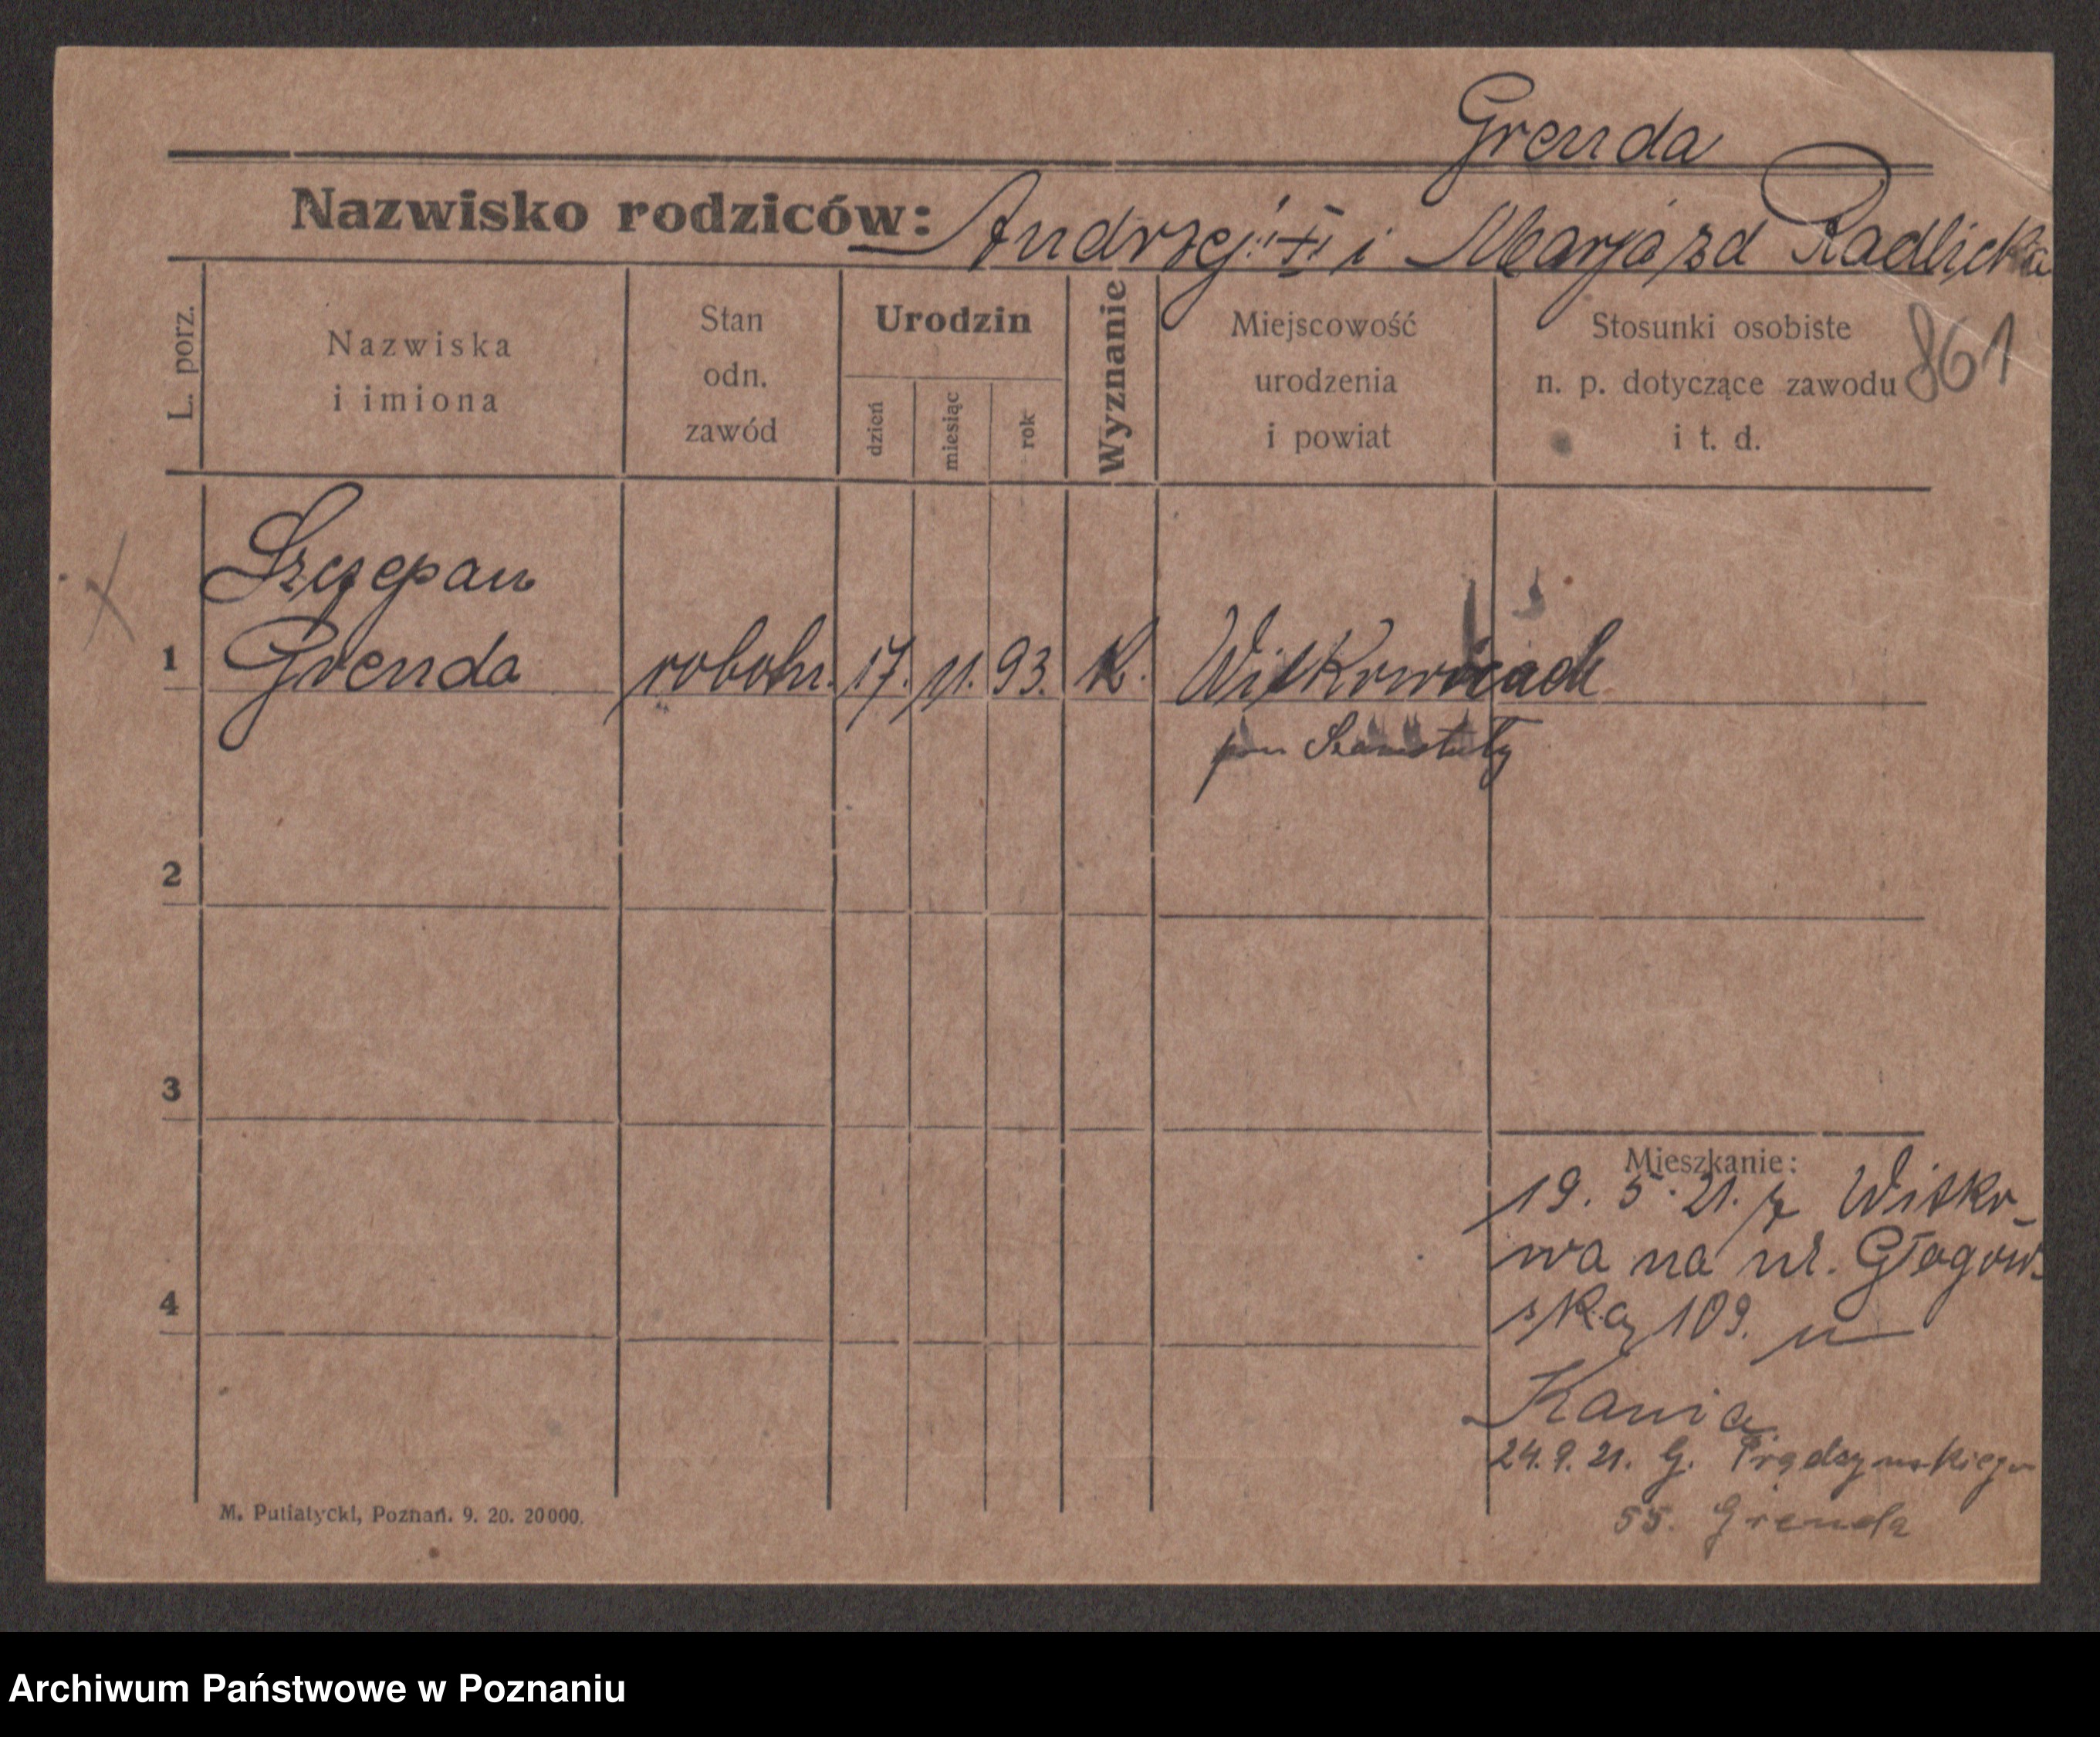 Grenda
Nazwisko rodziców: Andrzej + i Marja zd Radlicka
L. porz.
Nazwiska
i imiona
Stan
odn.
zawód
Urodzin
dzień
miesiąc
rok
Wyznanie
Miejscowość
urodzenia
i powiat
Stosunki osobiste
n. p. dotyczące zawodu
i t. d.
861
Szczepan
1 Grenda robotn. 17. 11. 93. K. Witkowicach
pow Szamotuły
2
3
Mieszkanie:
19. 5. 21. z Witko-
wa na ul. Głogow-
4
ską 109. u
Kania
24. 9. 21. G. Prądzynskiego
55. Grenda
M. Putiatycki, Poznań. 9. 20. 20000.
Archiwum Państwowe w Poznaniu